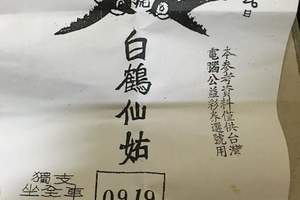 6日
本參考資料僅供台灣
電腦公益彩券選號用
白鶴仙姑
獨支
坐全車
0919